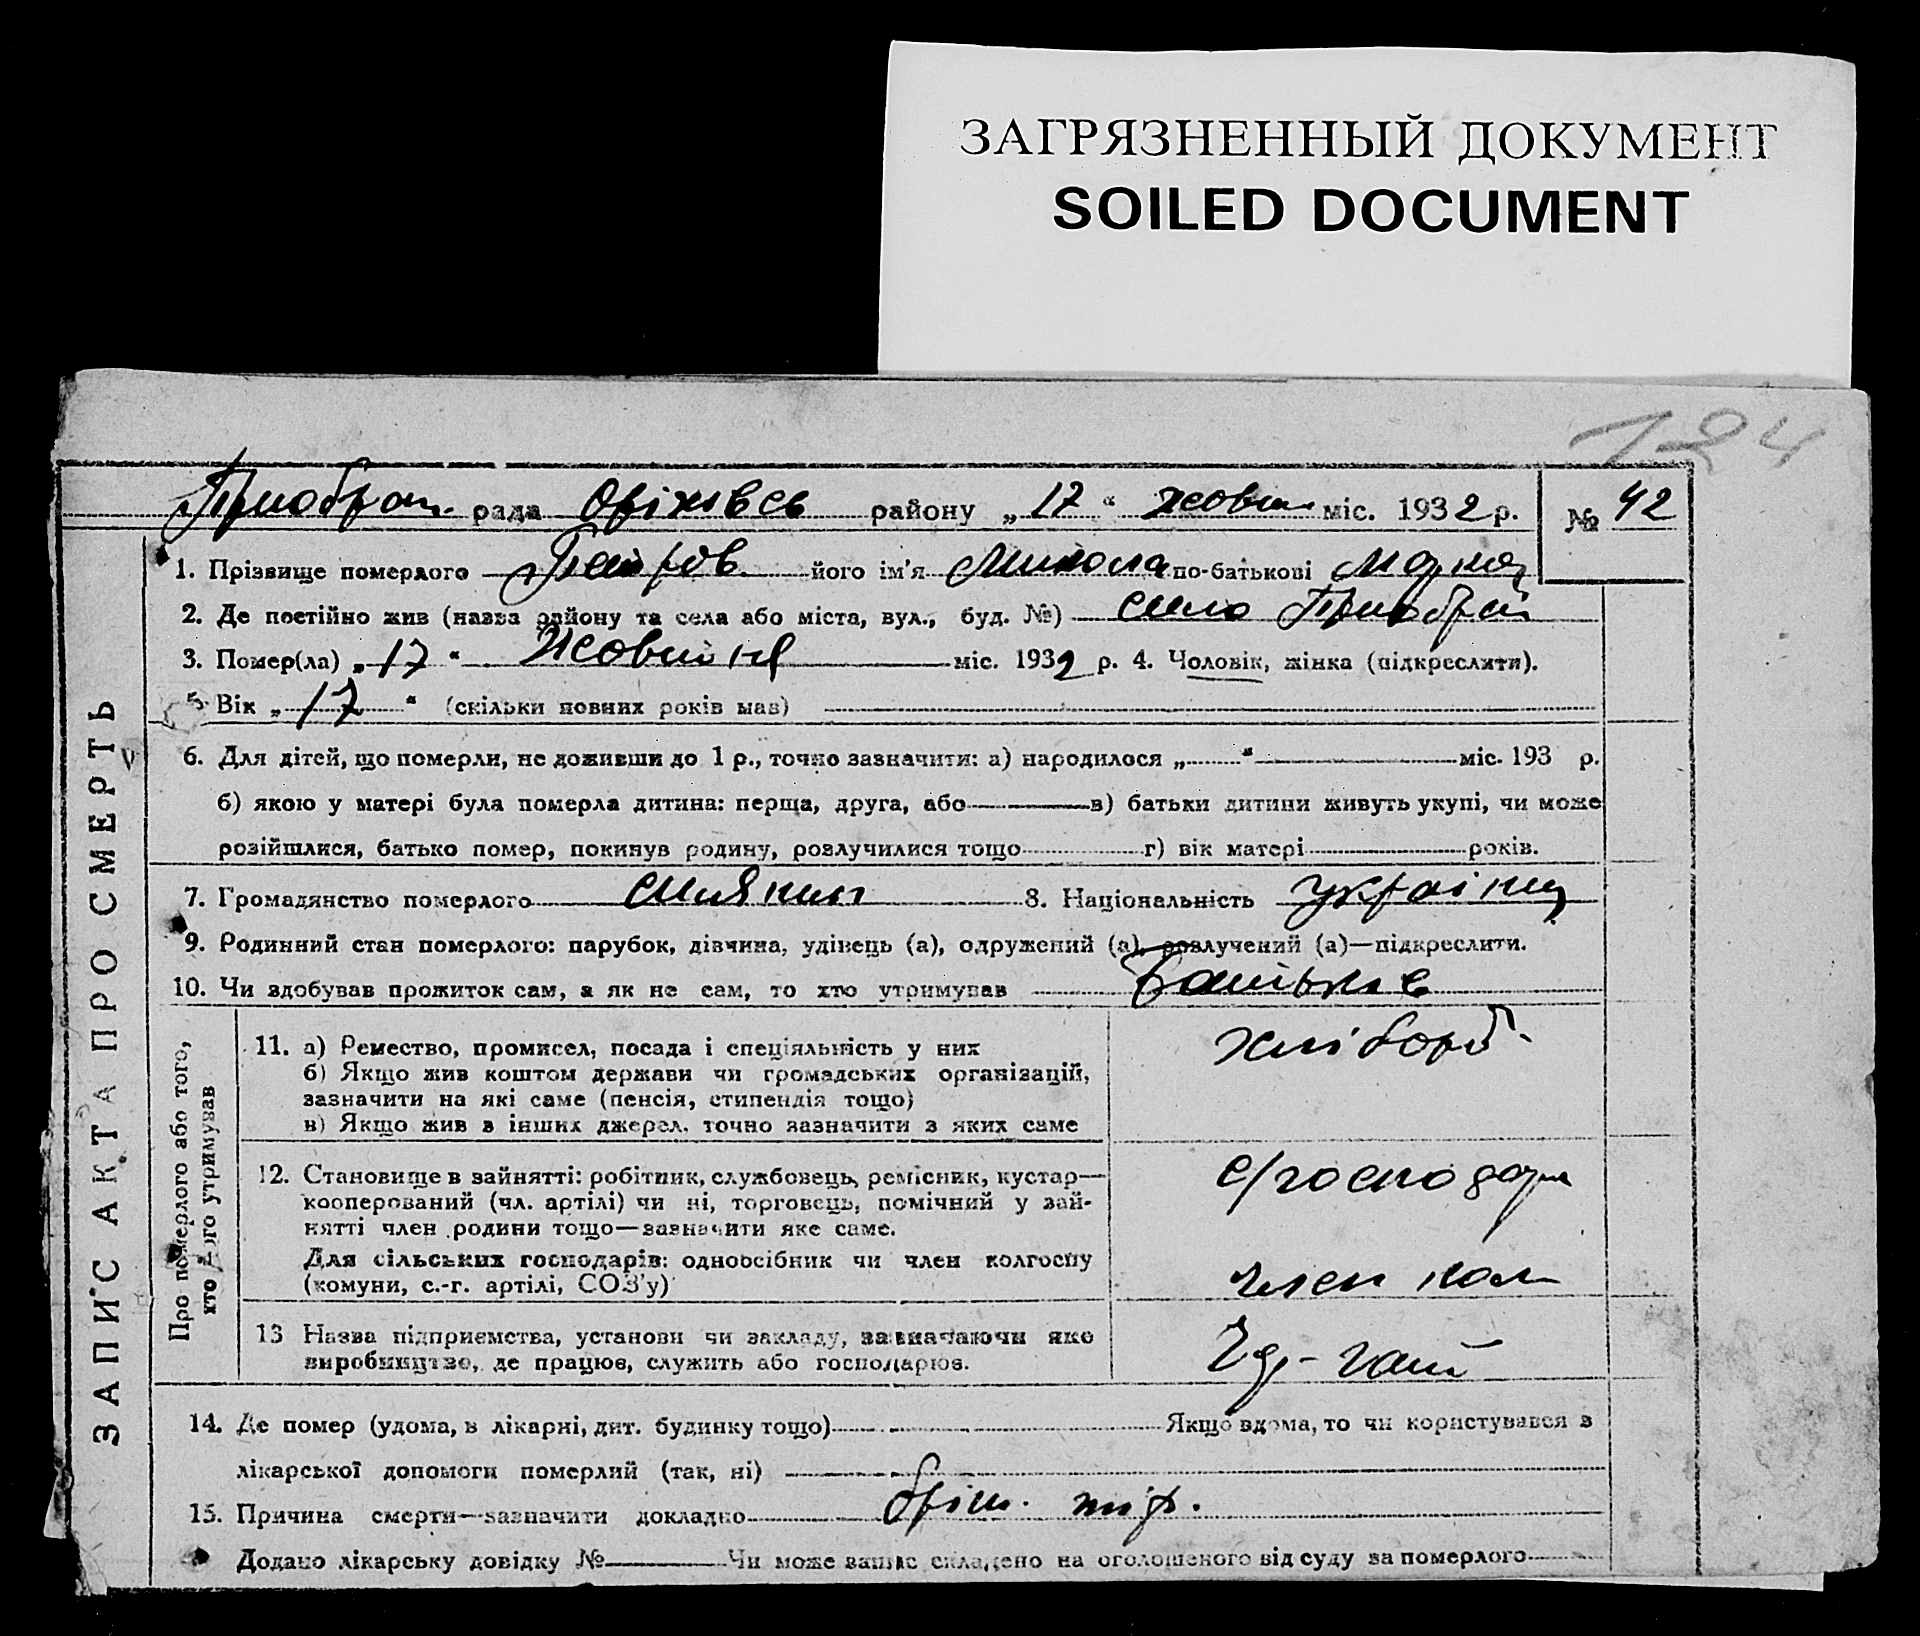 ЗАГРЯЗНЕННЫЙ ДОКУМЕНТ
SOILED DOCUMENT
124
рада Оріхівсь району „17“ жовтн міс. 1932 р. № 42
ЗАПИС АКТА ПРО СМЕРТЬ
1. Прізвище померлого Петров його ім'я Микола по-батькові
2. Де постійно жив (назва району та села або міста, вул., буд. №) село
3. Помер(ла) „17“ Жовтня міс. 1932 р. 4. Чоловік, жінка (підкреслити).
5. Вік „17“ (скільки повних років мав)
6. Для дітей, що померли, не доживши до 1 р., точно зазначити: а) народилося „ “ міс. 193 р.
б) якою у матері була померла дитина: перща, друга, або в) батьки дитини живуть укупі, чи може
розійшлися, батько помер, покинув родину, розлучилися тощо г) вік матері років.
7. Громадянство померлого 8. Національність україн
9. Родинний стан померлого: парубок, дівчина, удівець (а), одружений (а), розлучений (а)—підкреслити.
10. Чи здобував прожиток сам, а як не сам, то хто утримував Батьків
Про померлого або того, хто його утримував
11. а) Ремество, промисел, посада і спеціяльність у них хлібороб
б) Якщо жив коштом держави чи громадських організацій,
зазначити на які саме (пенсія, стипендія тощо)
в) Якщо жив з інших джерел, точно зазначити з яких саме
12. Становище в зайнятті: робітник, службовець, ремісник, кустар—
кооперований (чл. артілі) чи ні, торговець, помічний у зай-
нятті член родини тощо—зазначити яке саме. с/господар
Для сільських господарів: одноосібник чи член колгоспу
(комуни, с.-г. артілі, СОЗ'у) член кол
13 Назва підприємства, установи чи закладу, зазначаючи яке
виробництво, де працює, служить або господарює.
14. Де помер (удома, в лікарні, дит. будинку тощо) Якщо вдома, то чи користувався з
лікарської допомоги померлий (так, ні)
15. Причина смерти—зазначити докладно тіф.
Додано лікарську довідку № Чи може запис складено на оголошеного від суду за померлого